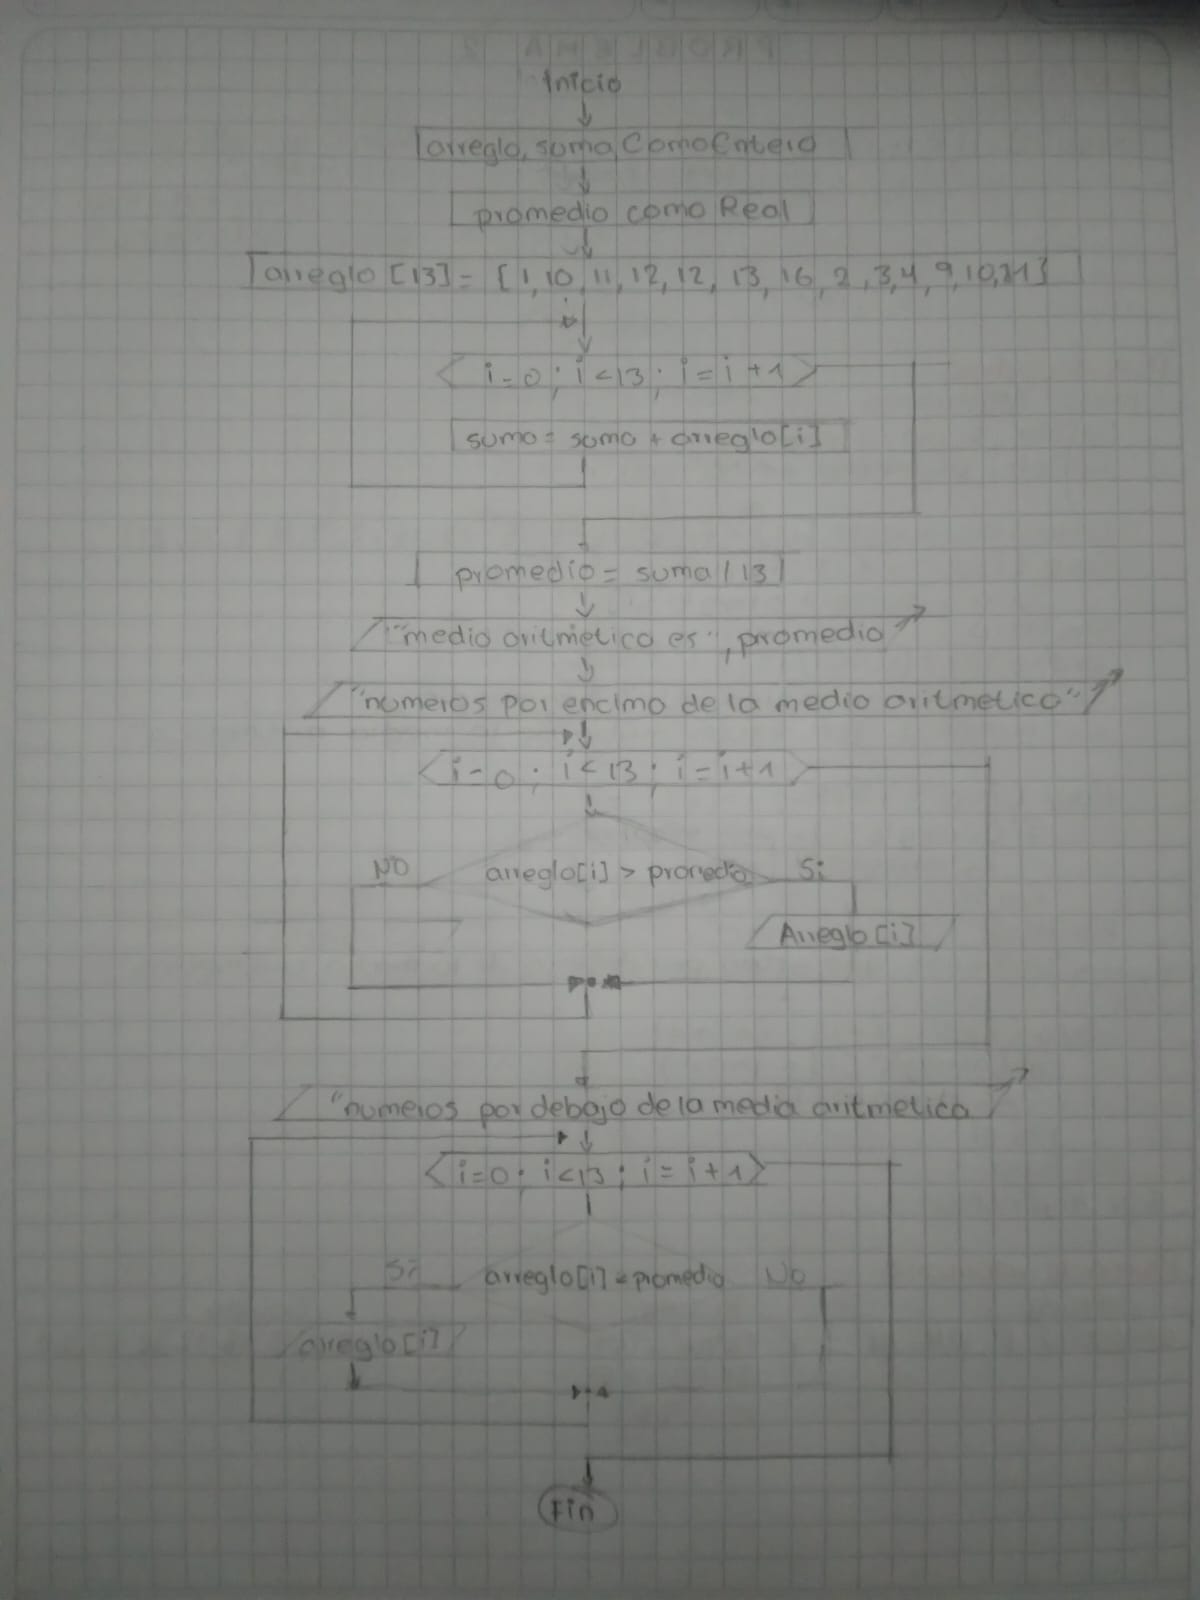 Inicio
arreglo, suma Como Entero
promedio como Real
arreglo [13] = {1,10,11,12,12,13,16,2,3,4,9,10,21}
i=0; i<13; i=i+1
suma = suma + arreglo[i]
promedio = suma / 13
"media aritmetica es", promedio
"numeros por encima de la media aritmetica"
i=0; i<13; i=i+1
NO arreglo[i] > promedio Si
Arreglo[i]
"numeros por debajo de la media aritmetica
i=0; i<13; i=i+1
Si arreglo[i] < promedio No
arreglo[i]
Fin